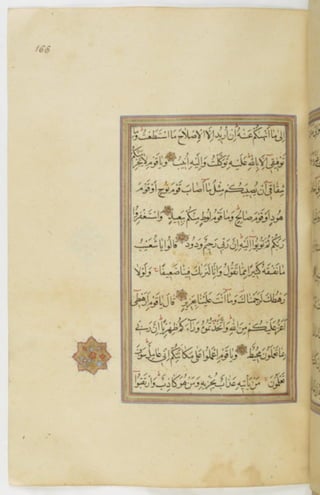 166
إلى ما أنهيكم عنه إن أريد إلا الإصلاح ما استطعت وما
توفيقي إلا بالله عليه توكلت وإليه أنيب ويا قوم لا يجرمنكم
شقاقي أن يصيبكم مثل ما أصاب قوم نوح أو قوم
هود أو قوم صالح وما قوم لوط منكم ببعيد واستغفروا
ربكم ثم توبوا إليه إن ربي رحيم ودود قالوا يا شعيب
ما نفقه كثيرا مما تقول وإنا لنريك فينا ضعيفا ولولا
رهطك لرجمناك وما أنت علينا بعزيز قال يا قوم أرهطي
أعز عليكم من الله واتخذتموه وراءكم ظهريا إن ربي
بما تعملون محيط ويا قوم اعملوا على مكانتكم إني عامل سوف
تعلمون من يأتيه عذاب يخزيه ومن هو كاذب وارتقبوا